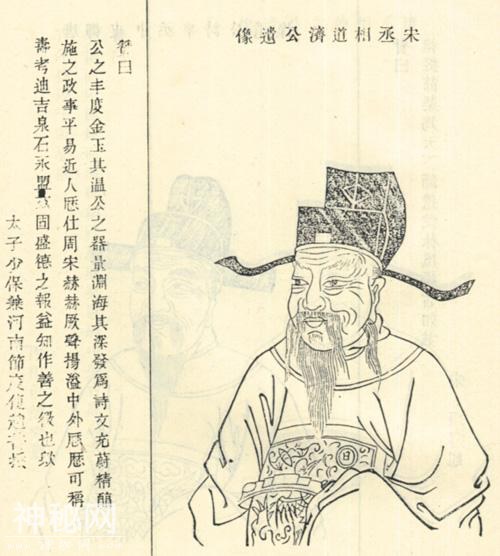 宋丞相道濟公遺像
贊曰
公之丰度金玉其温公之器量淵海其深發爲詩文充蔚精醇
施之政事平易近人歷仕周宋赫赫厥尊揚溢中外歷歷可稱
壽考迪吉泉石永盟固盛德之報益知作善之徵也歟
太子少保兼河南節度使趙普
神秘网